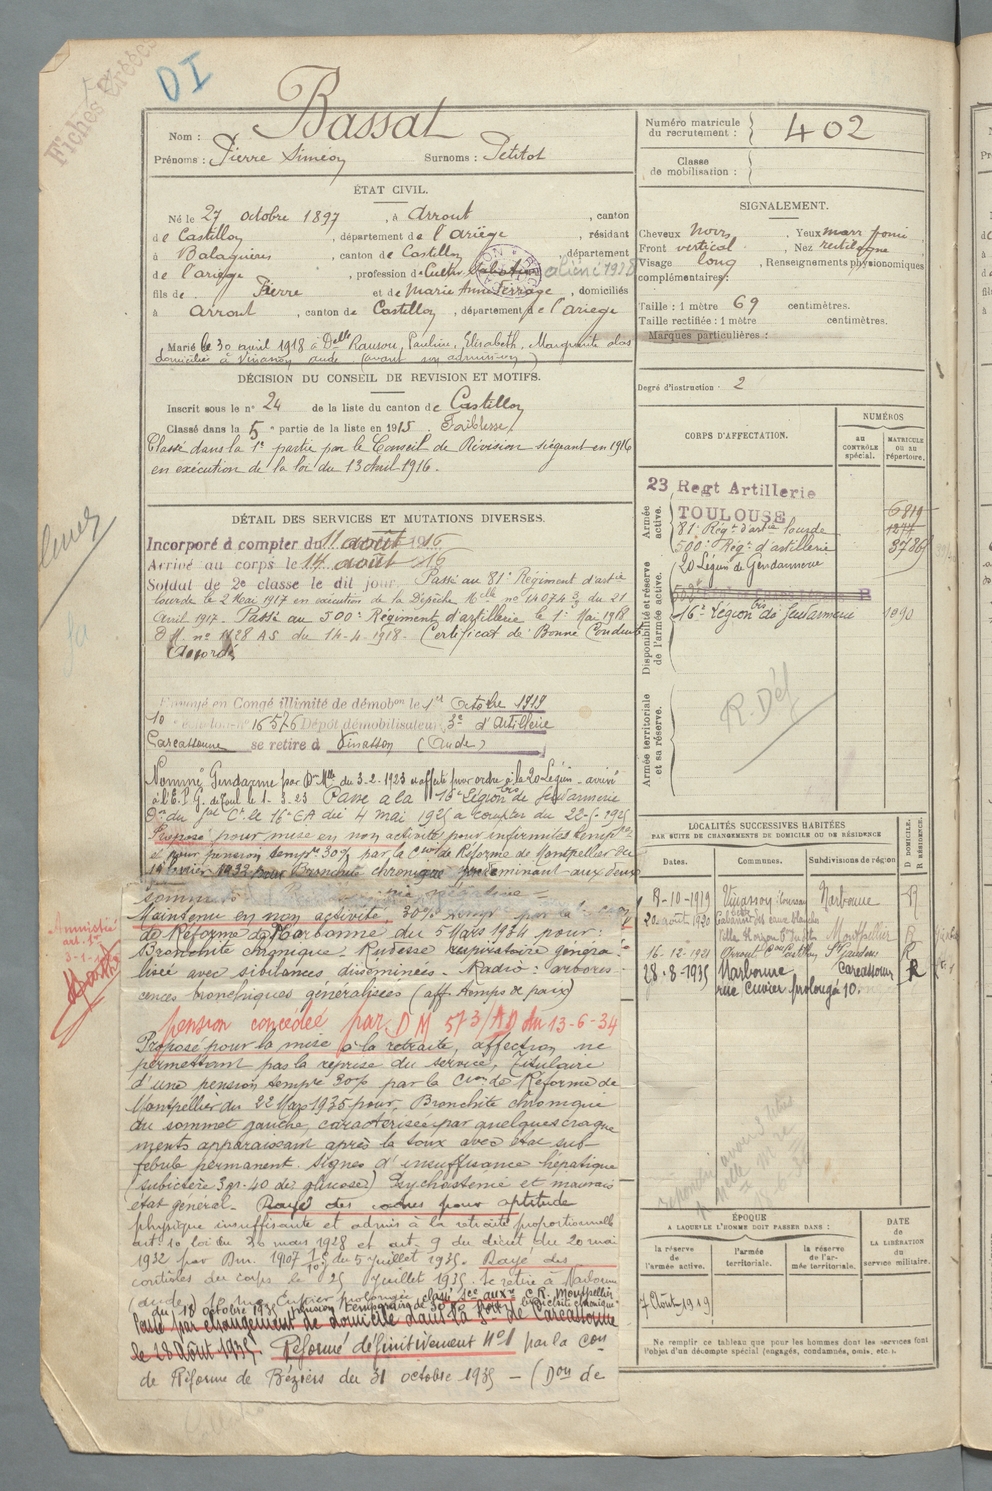 Fiches Créées
DI
Nom : Bassat
Prénoms : Pierre Siméon Surnoms : Petitot
ÉTAT CIVIL.
Né le 27 octobre 1897, à Arrout, canton
de Castillon, département de l'Ariège, résidant
à Balaguères, canton de Castillon, département
de l'ariège, profession de Cultiv.
fils de Pierre et de Marie Anne Ferrage, domiciliés
à Arrout, canton de Castillon, département de l'Ariege
Marié le 30 avril 1918 à Delle Pauline, Elisabeth, Marguerite
domiciliée à Vinassan aude (avant son admission)
DÉCISION DU CONSEIL DE REVISION ET MOTIFS.
Inscrit sous le n° 24 de la liste du canton de Castillon
Classé dans la 5e partie de la liste en 1915. Faiblesse.
Classé dans la 1e partie par le Conseil de Révision siégeant en 1916
en exécution de la loi du 13 Avril 1916.
DÉTAIL DES SERVICES ET MUTATIONS DIVERSES.
Incorporé à compter du 11 août 1916
Arrivé au corps le 14 août 16
Soldat de 2e classe le dit jour. Passé au 81e Régiment d'artie
lourde le 2 Mai 1917 en exécution de la Dépêche Mlle n° 14074 3/3 du 21
Avril 1917. Passé au 500e Régiment d'artillerie le 1er Mai 1918
D.M. n° 1128 AS du 14-4-1918. Certificat de Bonne Conduite
Accordé
Envoyé en Congé illimité de démobon le 1er Octobre 1919
10e échelon n° 16576 Dépôt démobilisateur 3e d'Artillerie
Carcassonne se retire à Vinassan (Aude)
Nommé Gendarme par Don Mlle du 3-2-1923 et affecté pour ordre à la 20e Légion arrivé
à l'E.P.G. de Toul le 1-3-23 Passé à la 16e Légion bis de Gendarmerie
Don du Gal Ct le 16e CA du 4 mai 1925 à compter du 22-5-1925
Proposé pour mise en non activité pour infirmités tempres
et pour pension tempre 30% par la Cion de Réforme de Montpellier du
19 février 1932 pour Bronchite chronique prédominant aux deux
sommets
Maintenu en non activité, 30% temp par la
de Réforme de Narbonne du 5 Mars 1934 pour :
Bronchite chronique. Rudesse respiratoire généra-
lisée avec sibilances disséminées. Radio : arbores
cences bronchiques généralisées (aff temps de paix)
pension concédée par DM 573/AD du 13-6-34
Proposé pour la mise à la retraite, affection ne
permettant pas la reprise du service, Titulaire
d'une pension tempre 30% par la Cion de Réforme de
Montpellier du 22 Mars 1935 pour, Bronchite chronique
du sommet gauche, caractérisée par quelques craque
ments apparaissant après la toux avec état sub
febrile permanent. Signes d'insuffisance hépatique
(subictère 3 gr. 40 de glucose) Psychasténie et mauvais
état général. Rayé des cadres pour aptitude
physique insuffisante et admis à la retraite proportionnelle
art. 10 loi du 30 mars 1928 et art. 9 du décret du 20 mai
1932 par Dm. 1907 du 5 juillet 1935. Rayé des
contrôles du corps le 25 Juillet 1935. Se retire à Narbonne
(aude) 10 rue Cuvier prolongée
du 18 octobre 1935 Pension temporaire de 30% C.R. Montpellier
Passé par changement de domicile dans la Son de Carcassonne
le 28 Août 1935. Réformé définitivement N°1 par la Con
de Réforme de Béziers du 31 octobre 1935 — (Don de
Amnistié
art. 1er
Numéro matricule du recrutement : 402
Classe de mobilisation :
SIGNALEMENT.
Cheveux Noirs, Yeux marr foncé
Front vertical. Nez rectiligne
Visage long, Renseignements physionomiques
complémentaires :
Taille : 1 mètre 69 centimètres.
Taille rectifiée : 1 mètre centimètres.
Marques particulières :
Degré d'instruction : 2
CORPS D'AFFECTATION.
NUMÉROS
au CONTRÔLE spécial.
MATRICULE ou au répertoire.
Armée active.
23 Regt Artillerie 6819
TOULOUSE
81e Régt d'artie lourde 1277
500e Régt d'artillerie 3786
Disponibilité et réserve de l'armée active.
20 Légion de Gendarmerie
16e Légion bis de Gendarmerie 1090
Armée territoriale et sa réserve.
R. Déf
LOCALITÉS SUCCESSIVES HABITÉES
PAR SUITE DE CHANGEMENTS DE DOMICILE OU DE RÉSIDENCE
Dates. Communes. Subdivisions de région D. DOMICILE. R. RÉSIDENCE.
8-10-1919 Vinassan Narbonne R
20 août 1920 Montpellier R
16-12-1921 St Gaudens R
28-8-1935 Narbonne Carcassonne R
rue Cuvier prolongée 10.
ÉPOQUE
A LAQUELLE L'HOMME DOIT PASSER DANS :
la réserve de l'armée active.
l'armée territoriale.
la réserve de l'armée territoriale.
DATE de LA LIBÉRATION du service militaire.
7 Août 1919
Ne remplir ce tableau que pour les hommes dont les services font
l'objet d'un décompte spécial (engagés, condamnés, omis, etc.).